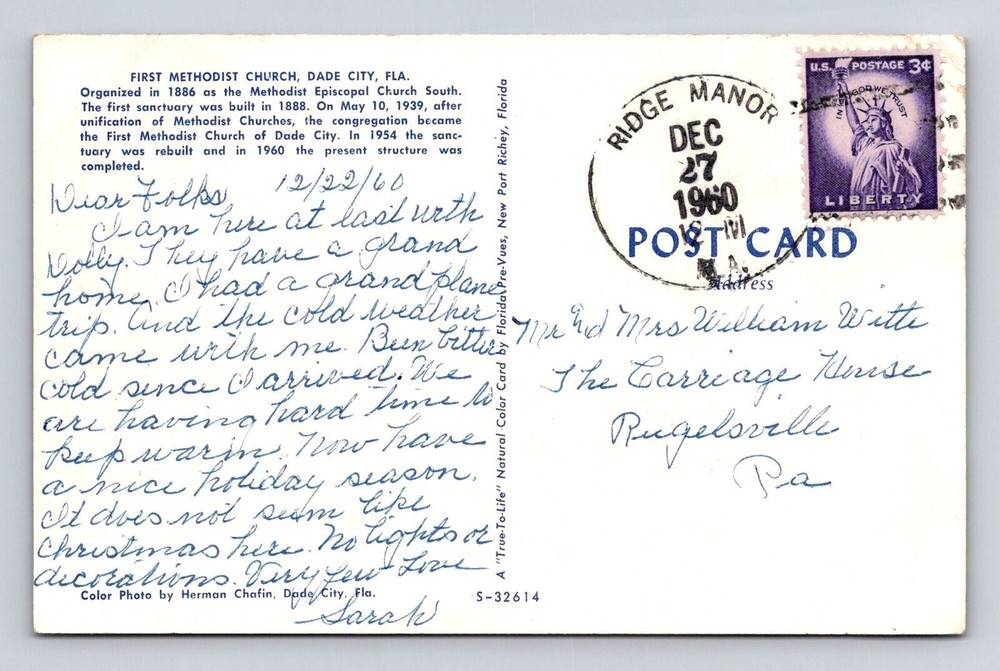 FIRST METHODIST CHURCH, DADE CITY, FLA.
Organized in 1886 as the Methodist Episcopal Church South.
The first sanctuary was built in 1888. On May 10, 1939, after
unification of Methodist Churches, the congregation became
the First Methodist Church of Dade City. In 1954 the sanc-
tuary was rebuilt and in 1960 the present structure was
completed.
12/22/60
Dear Folks
I am here at last with
Dolly. They have a grand
home. I had a grand plane
trip. And the cold weather
came with me. Been bitter
cold since I arrived. We
are having hard time to
keep warm. Now have
a nice holiday season.
It does not seem like
Christmas here. No lights or
decorations. Very few Love
Sarah
Color Photo by Herman Chafin, Dade City, Fla.
S-32614
A "True-To-Life" Natural Color Card by Florida Pre-Vues, New Port Richey, Florida
RIDGE MANOR
DEC
27
1960
M
LA.
U.S. POSTAGE 3¢
IN GOD WE TRUST
LIBERTY
POST CARD
Address
Mr and Mrs William Witte
The Carriage House
Rugelsville
Pa